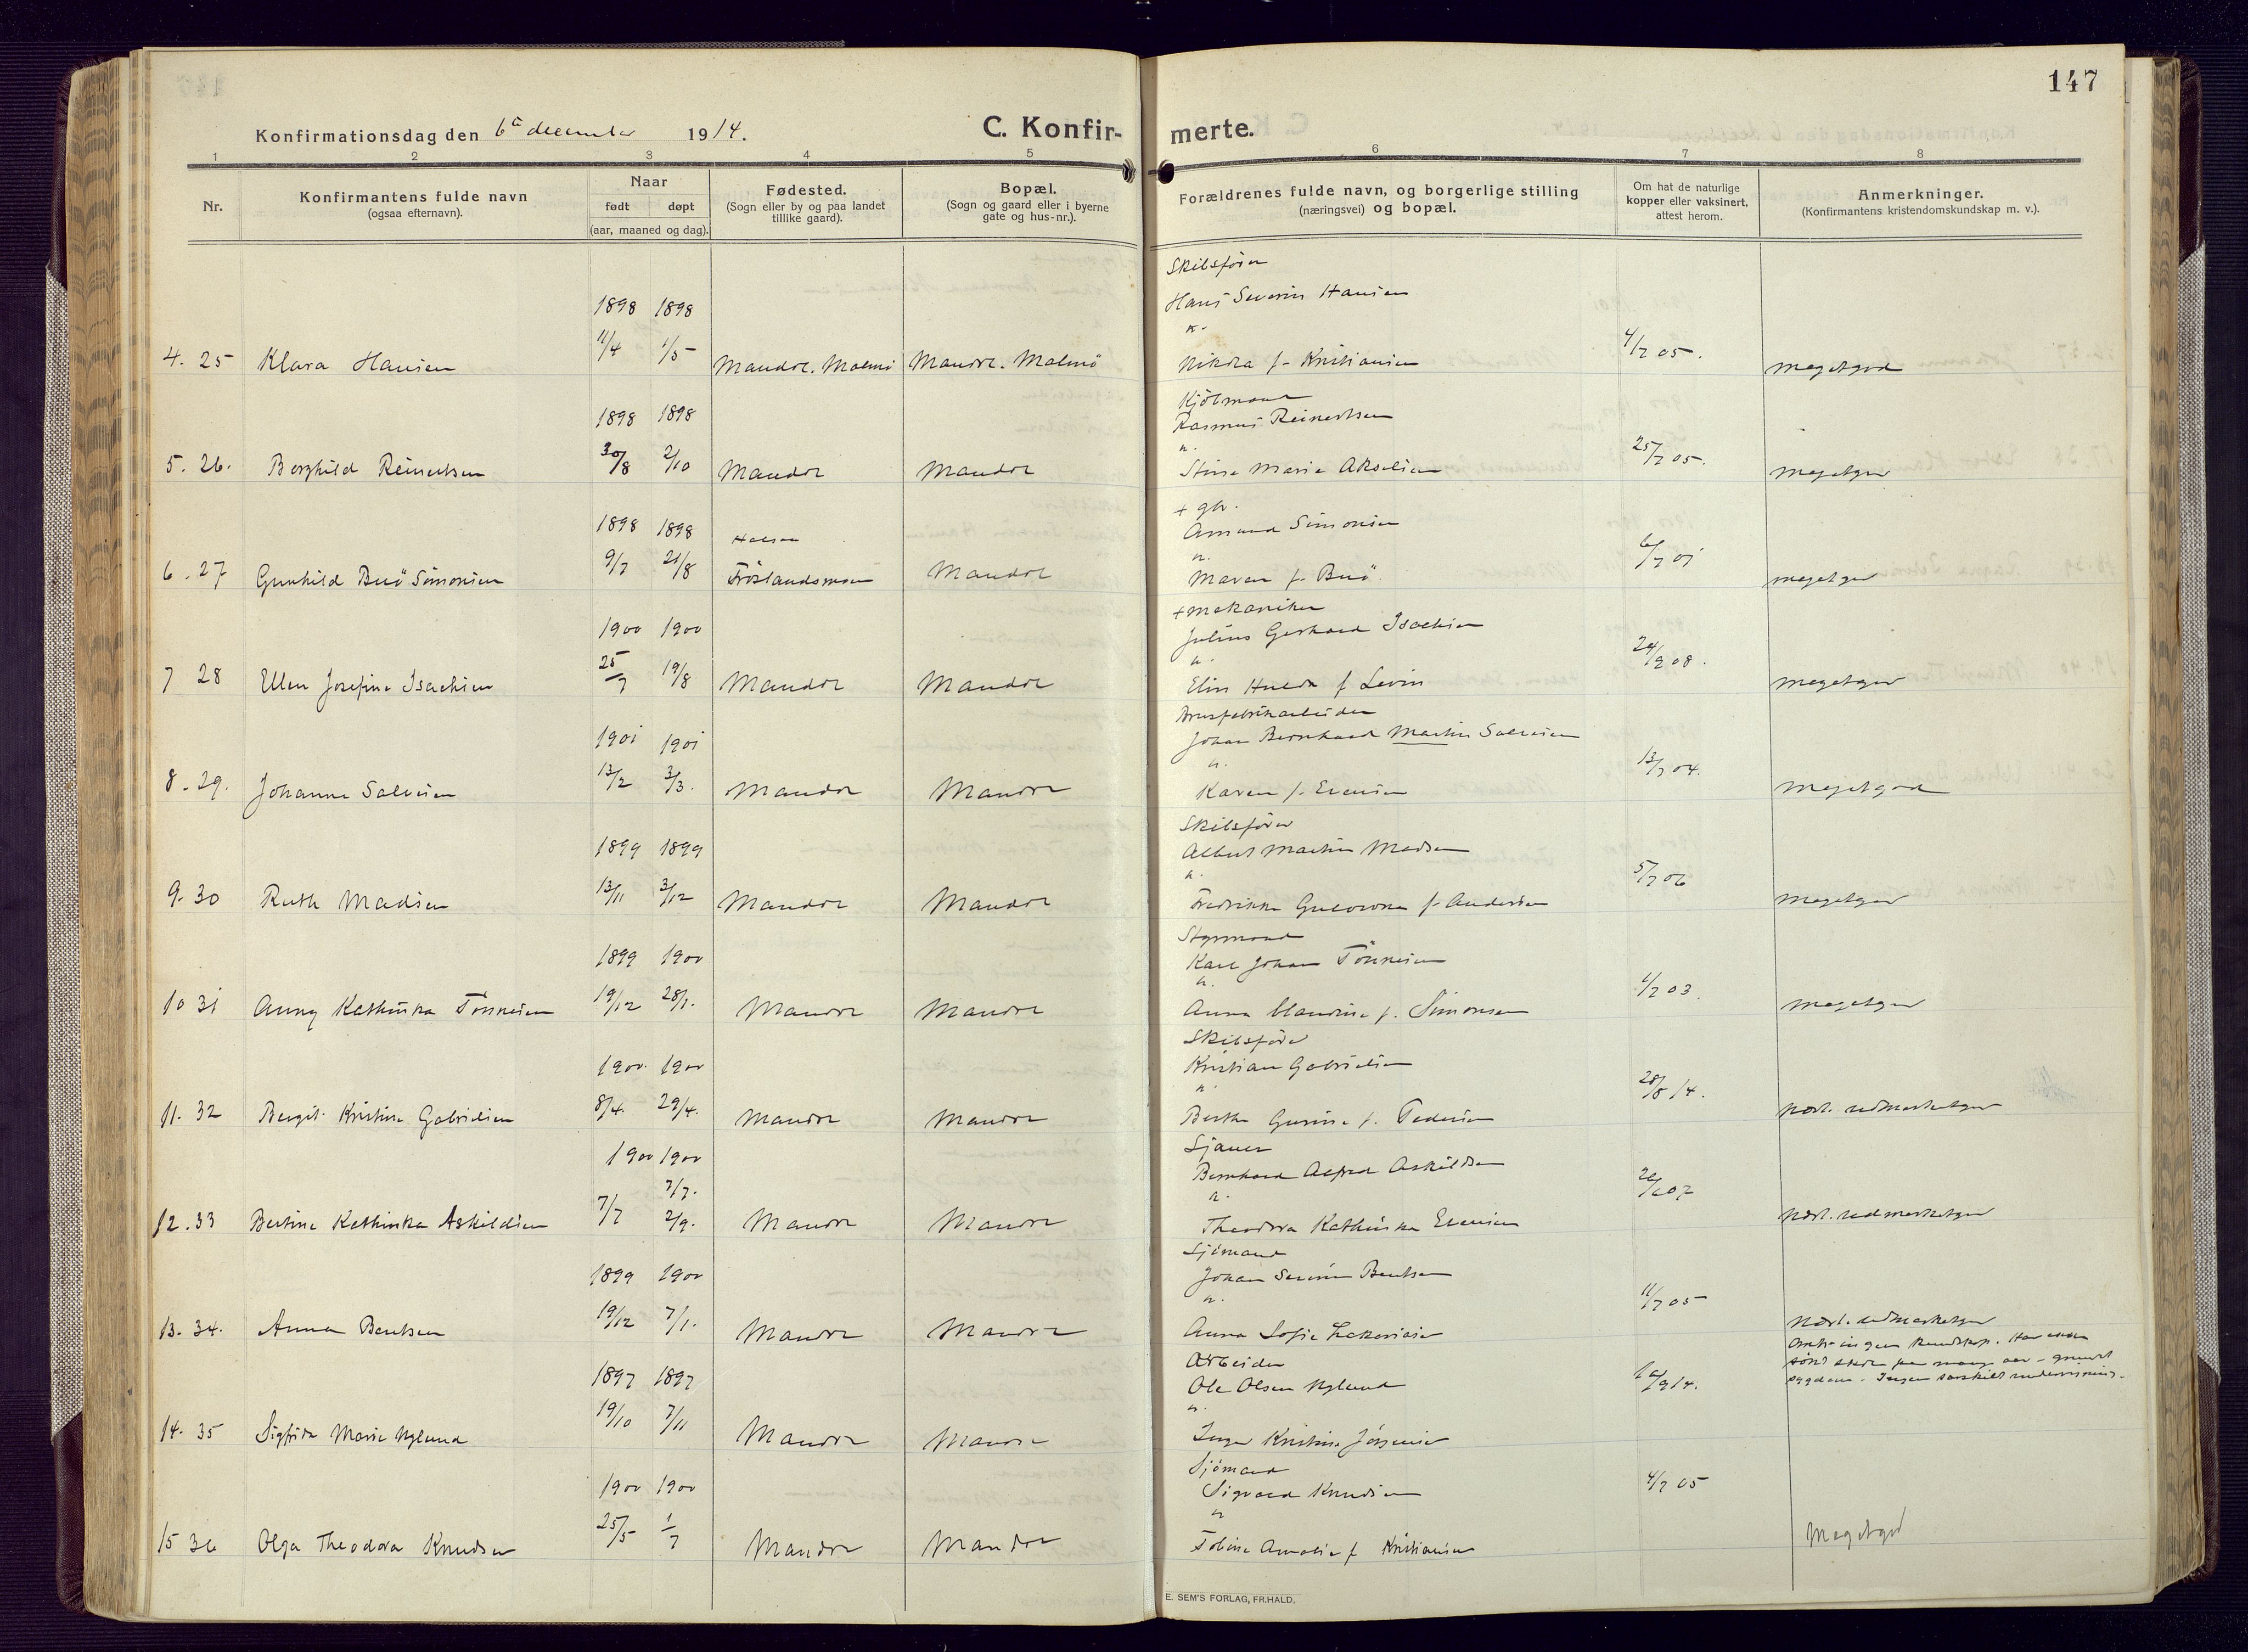 147
Konfirmationsdag den 6te december 1914.
C. Konfirmerte.
1 2 3 4 5 6 7 8
Nr.
Konfirmantens fulde navn
(ogsaa efternavn).
Naar
født døpt
(aar, maaned og dag).
Fødested.
(Sogn eller by og paa landet
tillike gaard).
Bopæl.
(Sogn og gaard eller i byerne
gate og hus-nr.).
Forældrenes fulde navn, og borgerlige stilling
(næringsvei) og bopæl.
Om hat de naturlige
kopper eller vaksinert,
attest herom.
Anmerkninger.
(Konfirmantens kristendomskundskap m. v.).
Skibsfører
1898 1898 Hans Severin Hansen
11/4 1/5 4/7 05.
4. 25 Klara Hansen Mandal. Malmö Mandal. Malmö f. Kristiansen megetgod
Kjöbmand
1898 1898 Rasmus Reinertsen
30/8 2/10 25/7 05.
5. 26. Borghild Reinertsen Mandal Mandal Stine Marie Akselsen megetgod
+ gbr.
1898 1898 Halsaa Amund Simonsen
9/7 21/8
6. 27 Gunhild Buö Simonsen Fröslandsmoen Mandal Maren f. Buö megetgod
+ mekaniker
1900 1900 Julius Gerhard Isachsen
25/7 19/8 24/9 08.
7 28 Ellen Josefine Isachsen Mandal Mandal Elin Hulda f Levin megetgod
1901 1901 Johan Bernhard Martin Salvesen
13/2 3/3. 13/7 04.
8. 29. Johanne Salvesen Mandal Mandal Karen f. Evensen megetgod
Skibsfører
1899 1899 Albert Martin Madsen
13/11 3/12 5/7 06
9. 30 Ruth Madsen Mandal Mandal Fredrikke f. Andersen megetgod
Styrmand
1899 1900 Karl Johan Tönnesen
19/12 28/1. 1/7 03.
10 31 Anny Kathinka Tönnesen Mandal Mandal Anna Blandine f. Simonsen megetgod
Skibsfører
1900. 1900 Kristian Gabrielsen
8/4. 29/4. 28/8 14.
11. 32 Bergit Kristine Gabrielsen Mandal Mandal Berthe Gurine f. Pedersen
Sjauer
1900 1900 Bernhard Alfred Askildsen
7/7 7/7.
2/9.
12. 33 Bertine Kathinka Askildsen Mandal Mandal Theodora Kathinka Evensen
Sjömand
1899 1900 Johan Severin Bentsen
19/12 7/1. 11/7 05
13. 34. Anna Bentsen Mandal Mandal Anna Sofie Zakariasen
Arbeider
1897 1897 Ole Olsen Nylund
19/10 7/11
14. 35 Sigfrida Marie Nylund Mandal Mandal Inger Kristine Jörgensen
Sjömand
1900 1900 Sigvard Knudsen
25/5 1/7 4/7 05
15 36 Olga Theodora Knudsen Mandal Mandal Tobine Amalie f Kristiansen Megetgod
E. SEM'S FORLAG, FR.HALD.